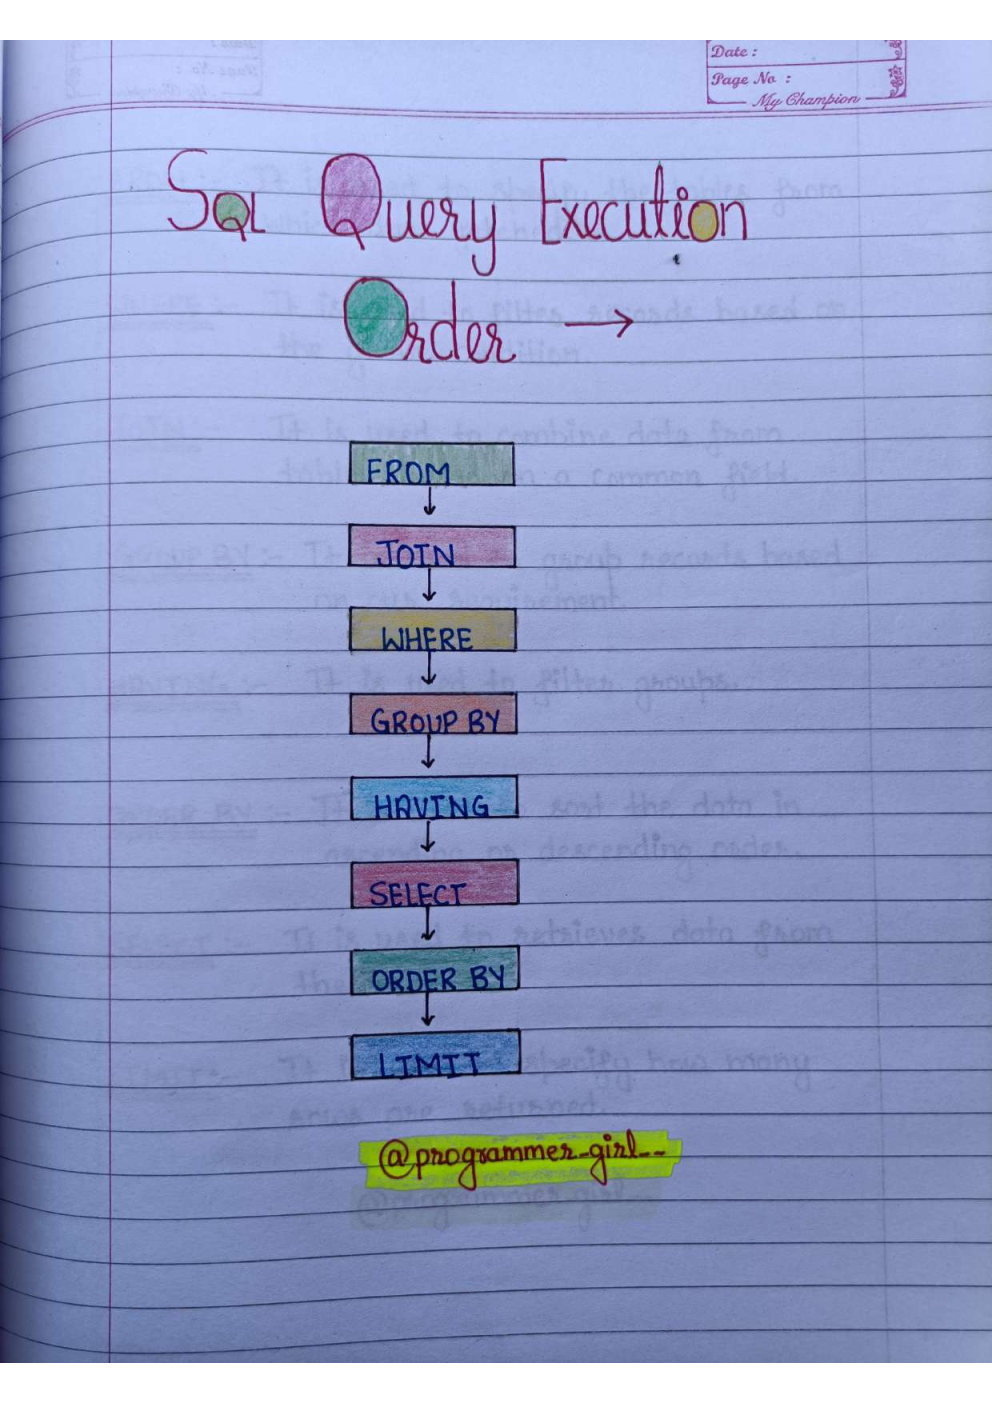 Date :
Page No :
My Champion
SQL Query Execution
Order →
FROM
JOIN
WHERE
GROUP BY
HAVING
SELECT
ORDER BY
LIMIT
@programmer_girl__